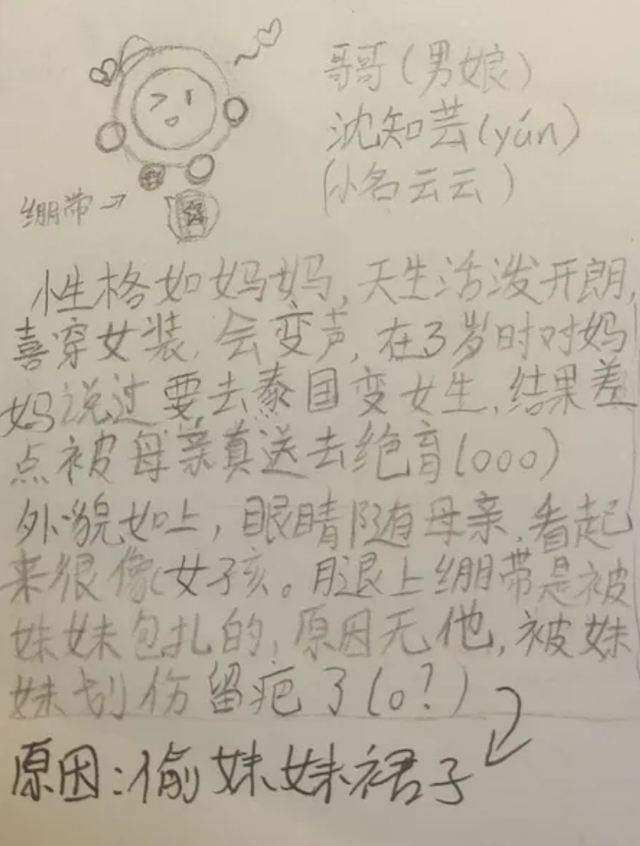 哥哥(男娘)
沈知芸(yún)
(小名云云)
绷带→
性格如妈妈,天生活泼开朗,
喜穿女装,会变声,在3岁时对妈
妈说过要去泰国变女生,结果差
点被母亲真送去绝育(ooo)
外貌如上,眼睛随母亲,看起
来很像女孩。腿上绷带是被
妹妹包扎的,原因无他,被妹
妹划伤留疤了(o?)
原因:偷妹妹裙子